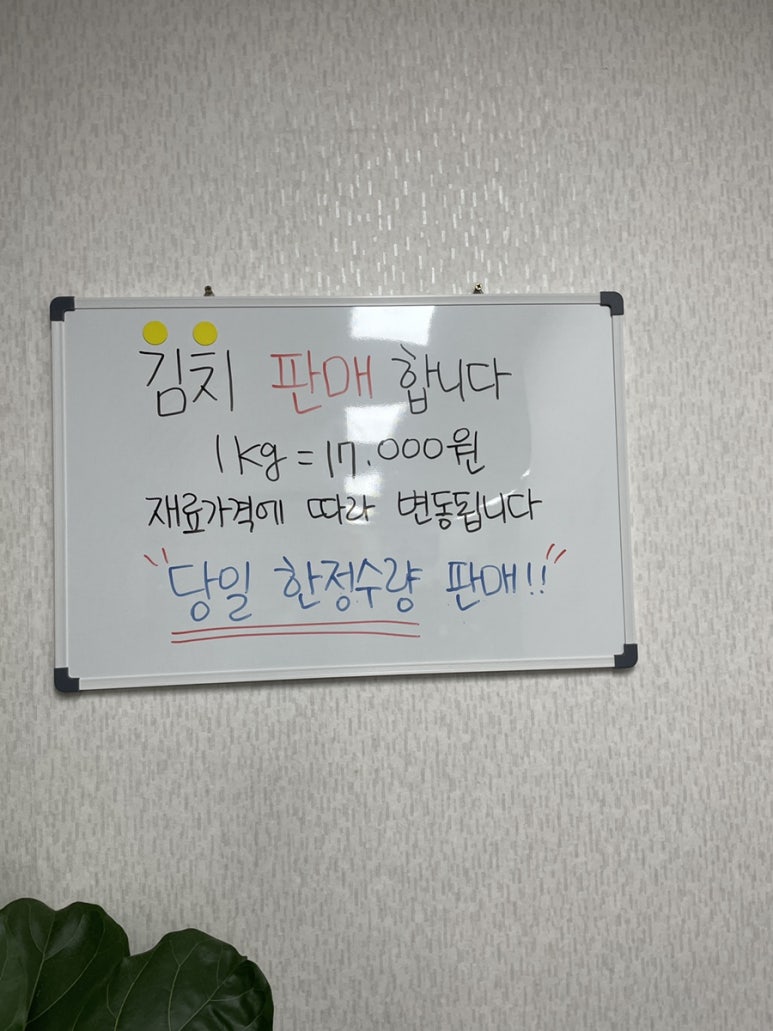 김치 판매 합니다
1kg = 17.000원
재료가격에 따라 변동됩니다
"당일 한정수량 판매!!"